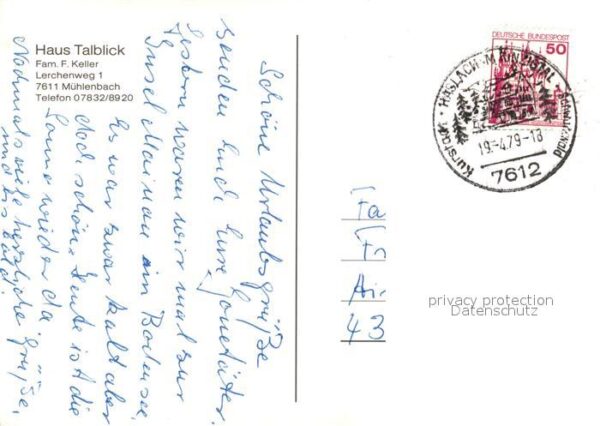 Haus Talblick
Fam. F. Keller
Lerchenweg 1
7611 Mühlenbach
Telefon 07832/8920
Schöne Urlaubsgrüße
senden Euch Eure
Gestern waren wir mal zur
Insel Mainau im Bodensee,
Es war zwar kalt aber
doch schön. Heute ist die
Sonne wieder da.
Nochmals viele herzliche Grüße,
und bis bald!
DEUTSCHE BUNDESPOST
50
HASLACH·IM KINZIGTAL
Kurstadt · Schwarzwald
19.-4.79-18
7612
Fa
Fr
43
privacy protection
Datenschutz